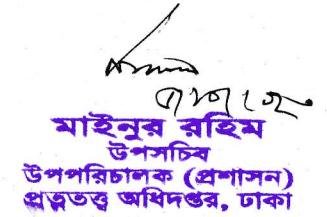 মাইনুর রহিম
উপসচিব
উপপরিচালক (প্রশাসন)
প্রত্নতত্ত্ব অধিদপ্তর, ঢাকা